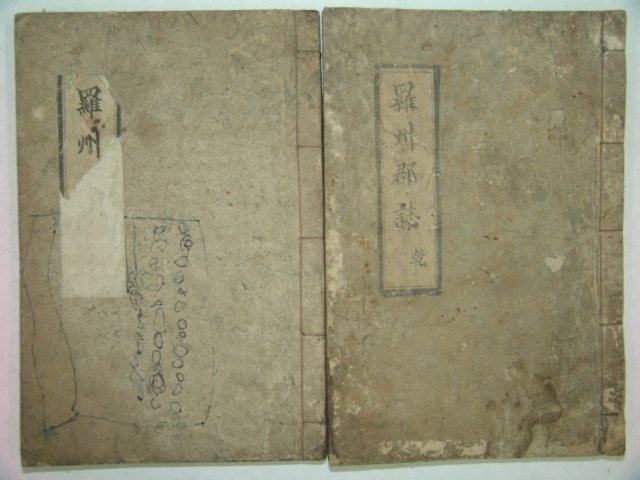 羅州郡誌 乾
羅州